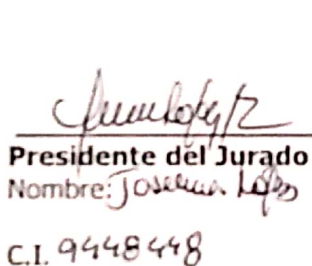 Presidente del Jurado
Nombre: López
C.I. 9448448